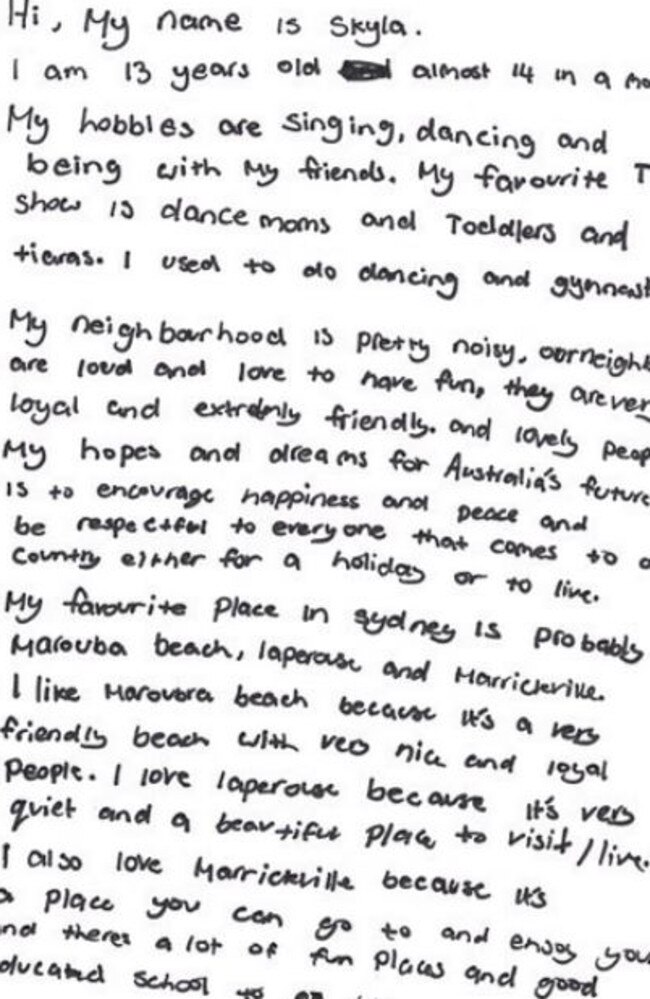 Hi, My name is Skyla.
I am 13 years old almost 14 in a
My hobbies are singing, dancing and
being with My friends. My favourite T
show is dance moms and Toddlers and
tiaras. I used to do dancing and gymnast
My neighbourhood is pretty noisy, our neighb
are loud and love to have fun, they are very
loyal and extremly friendly. and lovely peop
My hopes and dreams for Australia's future
is to encourage happiness and peace and
be respectful to everyone that comes to o
country either for a holiday or to live.
My favourite place in sydney is probably
Marouba beach, laperouse and Marrickville.
I like Maroubra beach because it's a very
friendly beach with nice and loyal
people. I love laperouse because it's very
quiet and a beautiful place to visit/live.
I also love Marrickville because it's
a place you can go to and enjoy you
nd theres a lot of fun places and good
ducated school to